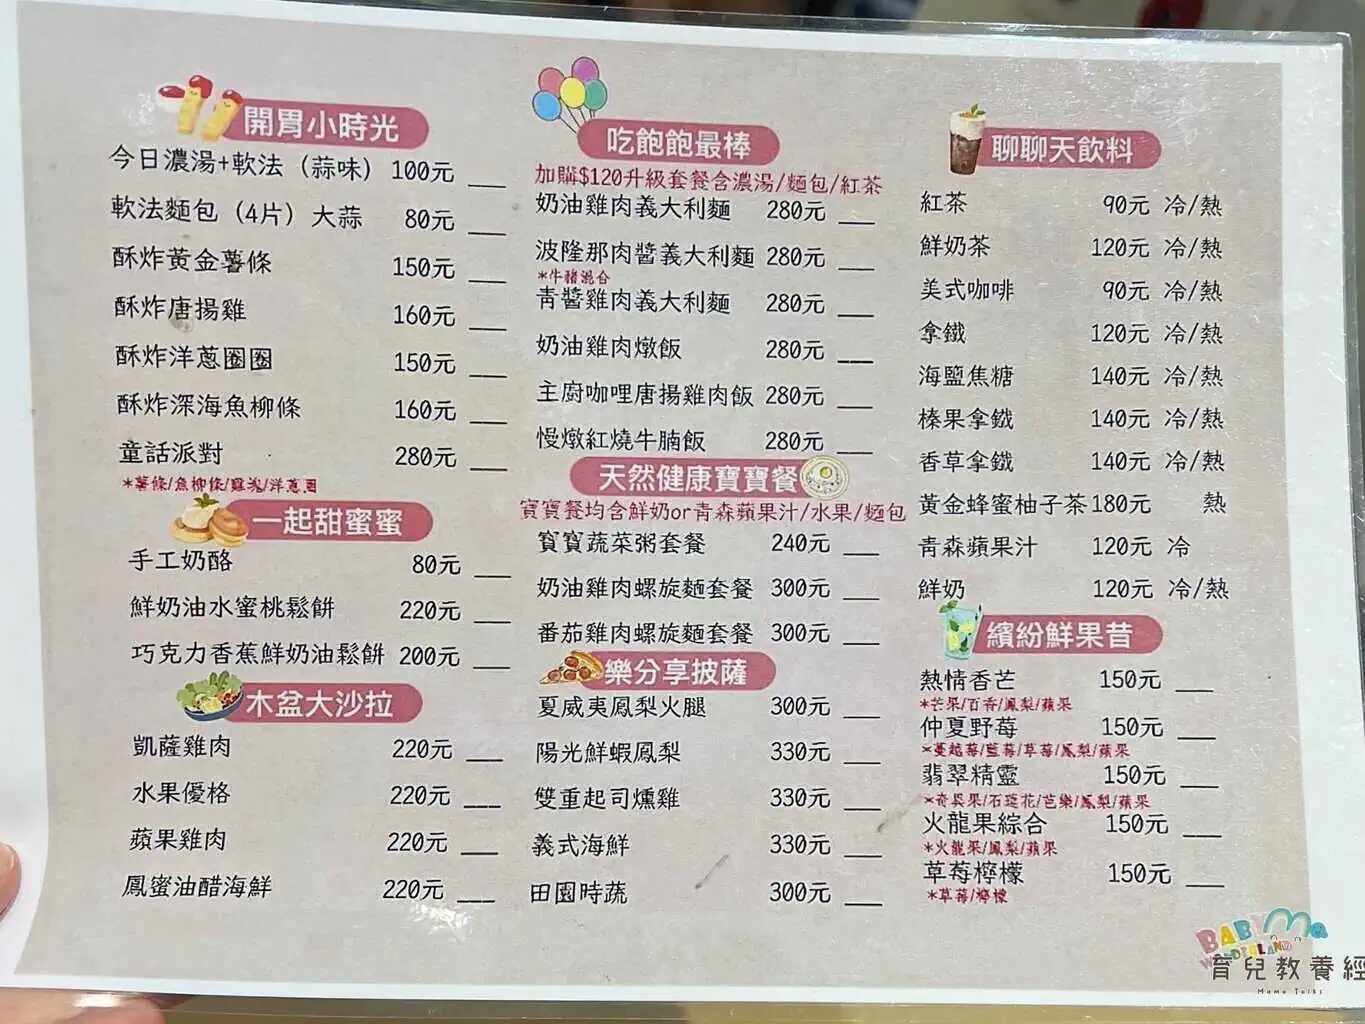 開胃小時光
今日濃湯+軟法（蒜味） 100元
軟法麵包（4片）大蒜 80元
酥炸黃金薯條 150元
酥炸唐揚雞 160元
酥炸洋蔥圈圈 150元
酥炸深海魚柳條 160元
童話派對 280元
*薯條/魚柳條/雞塊/洋蔥圈
一起甜蜜蜜
手工奶酪 80元
鮮奶油水蜜桃鬆餅 220元
巧克力香蕉鮮奶油鬆餅 200元
木盆大沙拉
凱薩雞肉 220元
水果優格 220元
蘋果雞肉 220元
鳳蜜油醋海鮮 220元
吃飽飽最棒
加購$120升級套餐含濃湯/麵包/紅茶
奶油雞肉義大利麵 280元
波隆那肉醬義大利麵 280元
*牛豬混合
青醬雞肉義大利麵 280元
奶油雞肉燉飯 280元
主廚咖哩唐揚雞肉飯 280元
慢燉紅燒牛腩飯 280元
天然健康寶寶餐
寶寶餐均含鮮奶or青森蘋果汁/水果/麵包
寶寶蔬菜粥套餐 240元
奶油雞肉螺旋麵套餐 300元
番茄雞肉螺旋麵套餐 300元
樂分享披薩
夏威夷鳳梨火腿 300元
陽光鮮蝦鳳梨 330元
雙重起司燻雞 330元
義式海鮮 330元
田園時蔬 300元
聊聊天飲料
紅茶 90元 冷/熱
鮮奶茶 120元 冷/熱
美式咖啡 90元 冷/熱
拿鐵 120元 冷/熱
海鹽焦糖 140元 冷/熱
榛果拿鐵 140元 冷/熱
香草拿鐵 140元 冷/熱
黃金蜂蜜柚子茶 180元 熱
青森蘋果汁 120元 冷
鮮奶 120元 冷/熱
繽紛鮮果昔
熱情香芒 150元
*芒果/百香/鳳梨/蘋果
仲夏野莓 150元
*蔓越莓/藍莓/草莓/鳳梨/蘋果
翡翠精靈 150元
*奇異果/石蓮花/芭樂/鳳梨/蘋果
火龍果綜合 150元
*火龍果/鳳梨/蘋果
草莓檸檬 150元
*草莓/檸檬
BABY Ma
WONDERLAND
育兒教養經
Mama Talks